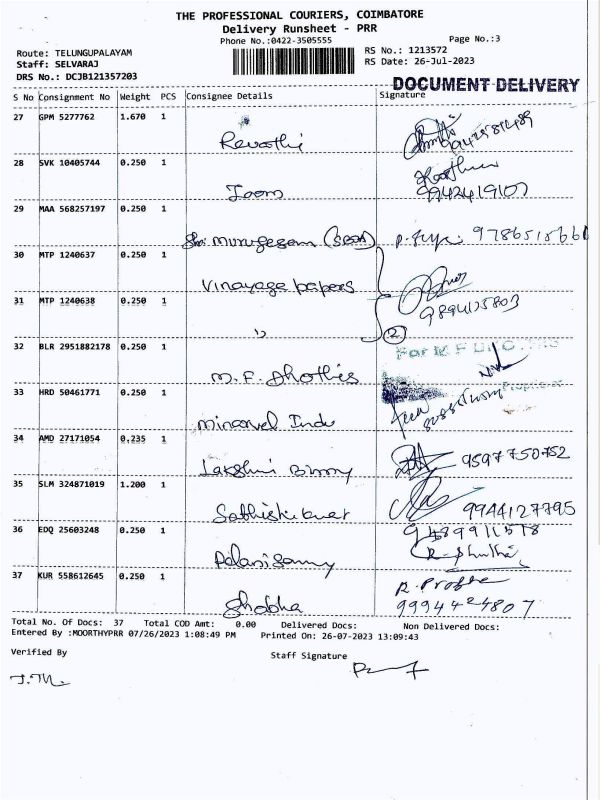 THE PROFESSIONAL COURIERS, COIMBATORE
Delivery Runsheet - PRR
Phone No.:0422-3505555
Page No.:3
Route: TELUNGUPALAYAM
RS No.: 1213572
Staff: SELVARAJ
RS Date: 26-Jul-2023
DRS No.: DCJB121357203
DOCUMENT DELIVERY
S No Consignment No Weight PCS Consignee Details Signature
27 GPM 5277762 1.670 1
Revathi
28 SVK 10405744 0.250 1
9942419107
29 MAA 568257197 0.250 1
Murugesan 9786518661
30 MTP 1240637 0.250 1
Vinayaga papers
31 MTP 1240638 0.250 1
9894125803
2
32 BLR 2951882178 0.250 1
M. F. Dhothies
33 HRD 50461771 0.250 1
34 AMD 27171054 0.235 1
Lakshmi 9597750752
35 SLM 324871019 1.200 1
Sathishkumar 9944127795
36 EDQ 25603248 0.250 1
9489911578
Palanisamy
37 KUR 558612645 0.250 1
Shobha 9994424807
Total No. Of Docs: 37 Total COD Amt: 0.00 Delivered Docs: Non Delivered Docs:
Entered By :MOORTHYPRR 07/26/2023 1:08:49 PM Printed On: 26-07-2023 13:09:43
Verified By
Staff Signature